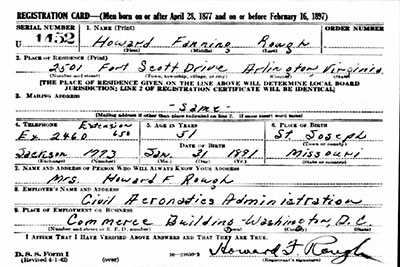 REGISTRATION CARD—(Men born on or after April 28, 1877 and on or before February 16, 1897)
SERIAL NUMBER 1. NAME (Print) ORDER NUMBER
U 1452 Howard Fanning Rough
(First) (Middle) (Last)
2. PLACE OF RESIDENCE (Print)
2501 Fort Scott Drive Arlington Virginia
(Number and street) (Town, township, village, or city) (County) (State)
[THE PLACE OF RESIDENCE GIVEN ON THE LINE ABOVE WILL DETERMINE LOCAL BOARD
JURISDICTION; LINE 2 OF REGISTRATION CERTIFICATE WILL BE IDENTICAL]
3. MAILING ADDRESS
- Same -
(Mailing address if other than place indicated on line 2. If same insert word same)
4. TELEPHONE 5. AGE IN YEARS 6. PLACE OF BIRTH
Extension
Ex. 2460 650 51 St. Joseph
DATE OF BIRTH (Town or county)
Jackson 1793 Jan. 21 1891 Missouri
(Exchange) (Number) (Mo.) (Day) (Yr.) (State or country)
7. NAME AND ADDRESS OF PERSON WHO WILL ALWAYS KNOW YOUR ADDRESS
Mrs. Howard F. Rough
8. EMPLOYER'S NAME AND ADDRESS
Civil Aeronatics Administration
9. PLACE OF EMPLOYMENT OR BUSINESS
Commerce Building - Washington, D.C.
(Number and street or R. F. D. number) (Town) (County) (State)
I AFFIRM THAT I HAVE VERIFIED ABOVE ANSWERS AND THAT THEY ARE TRUE.
D. S. S. Form 1
(Revised 4-1-42) (over) Howard F. Rough
(Registrant's signature)